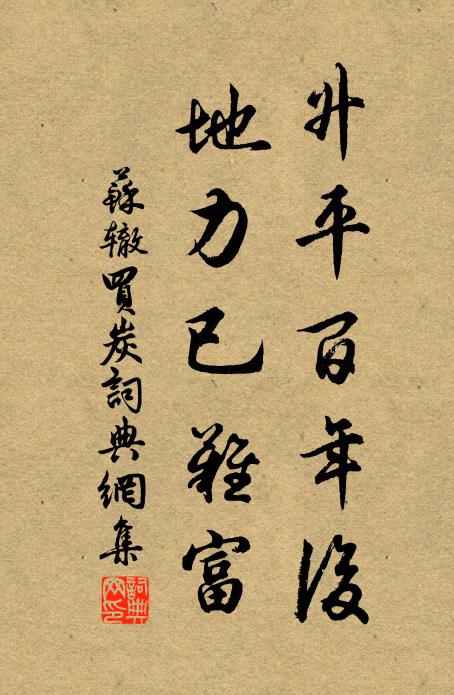 升平百年後
地力已難富
蘇轍買炭詞典網集
詞典網印